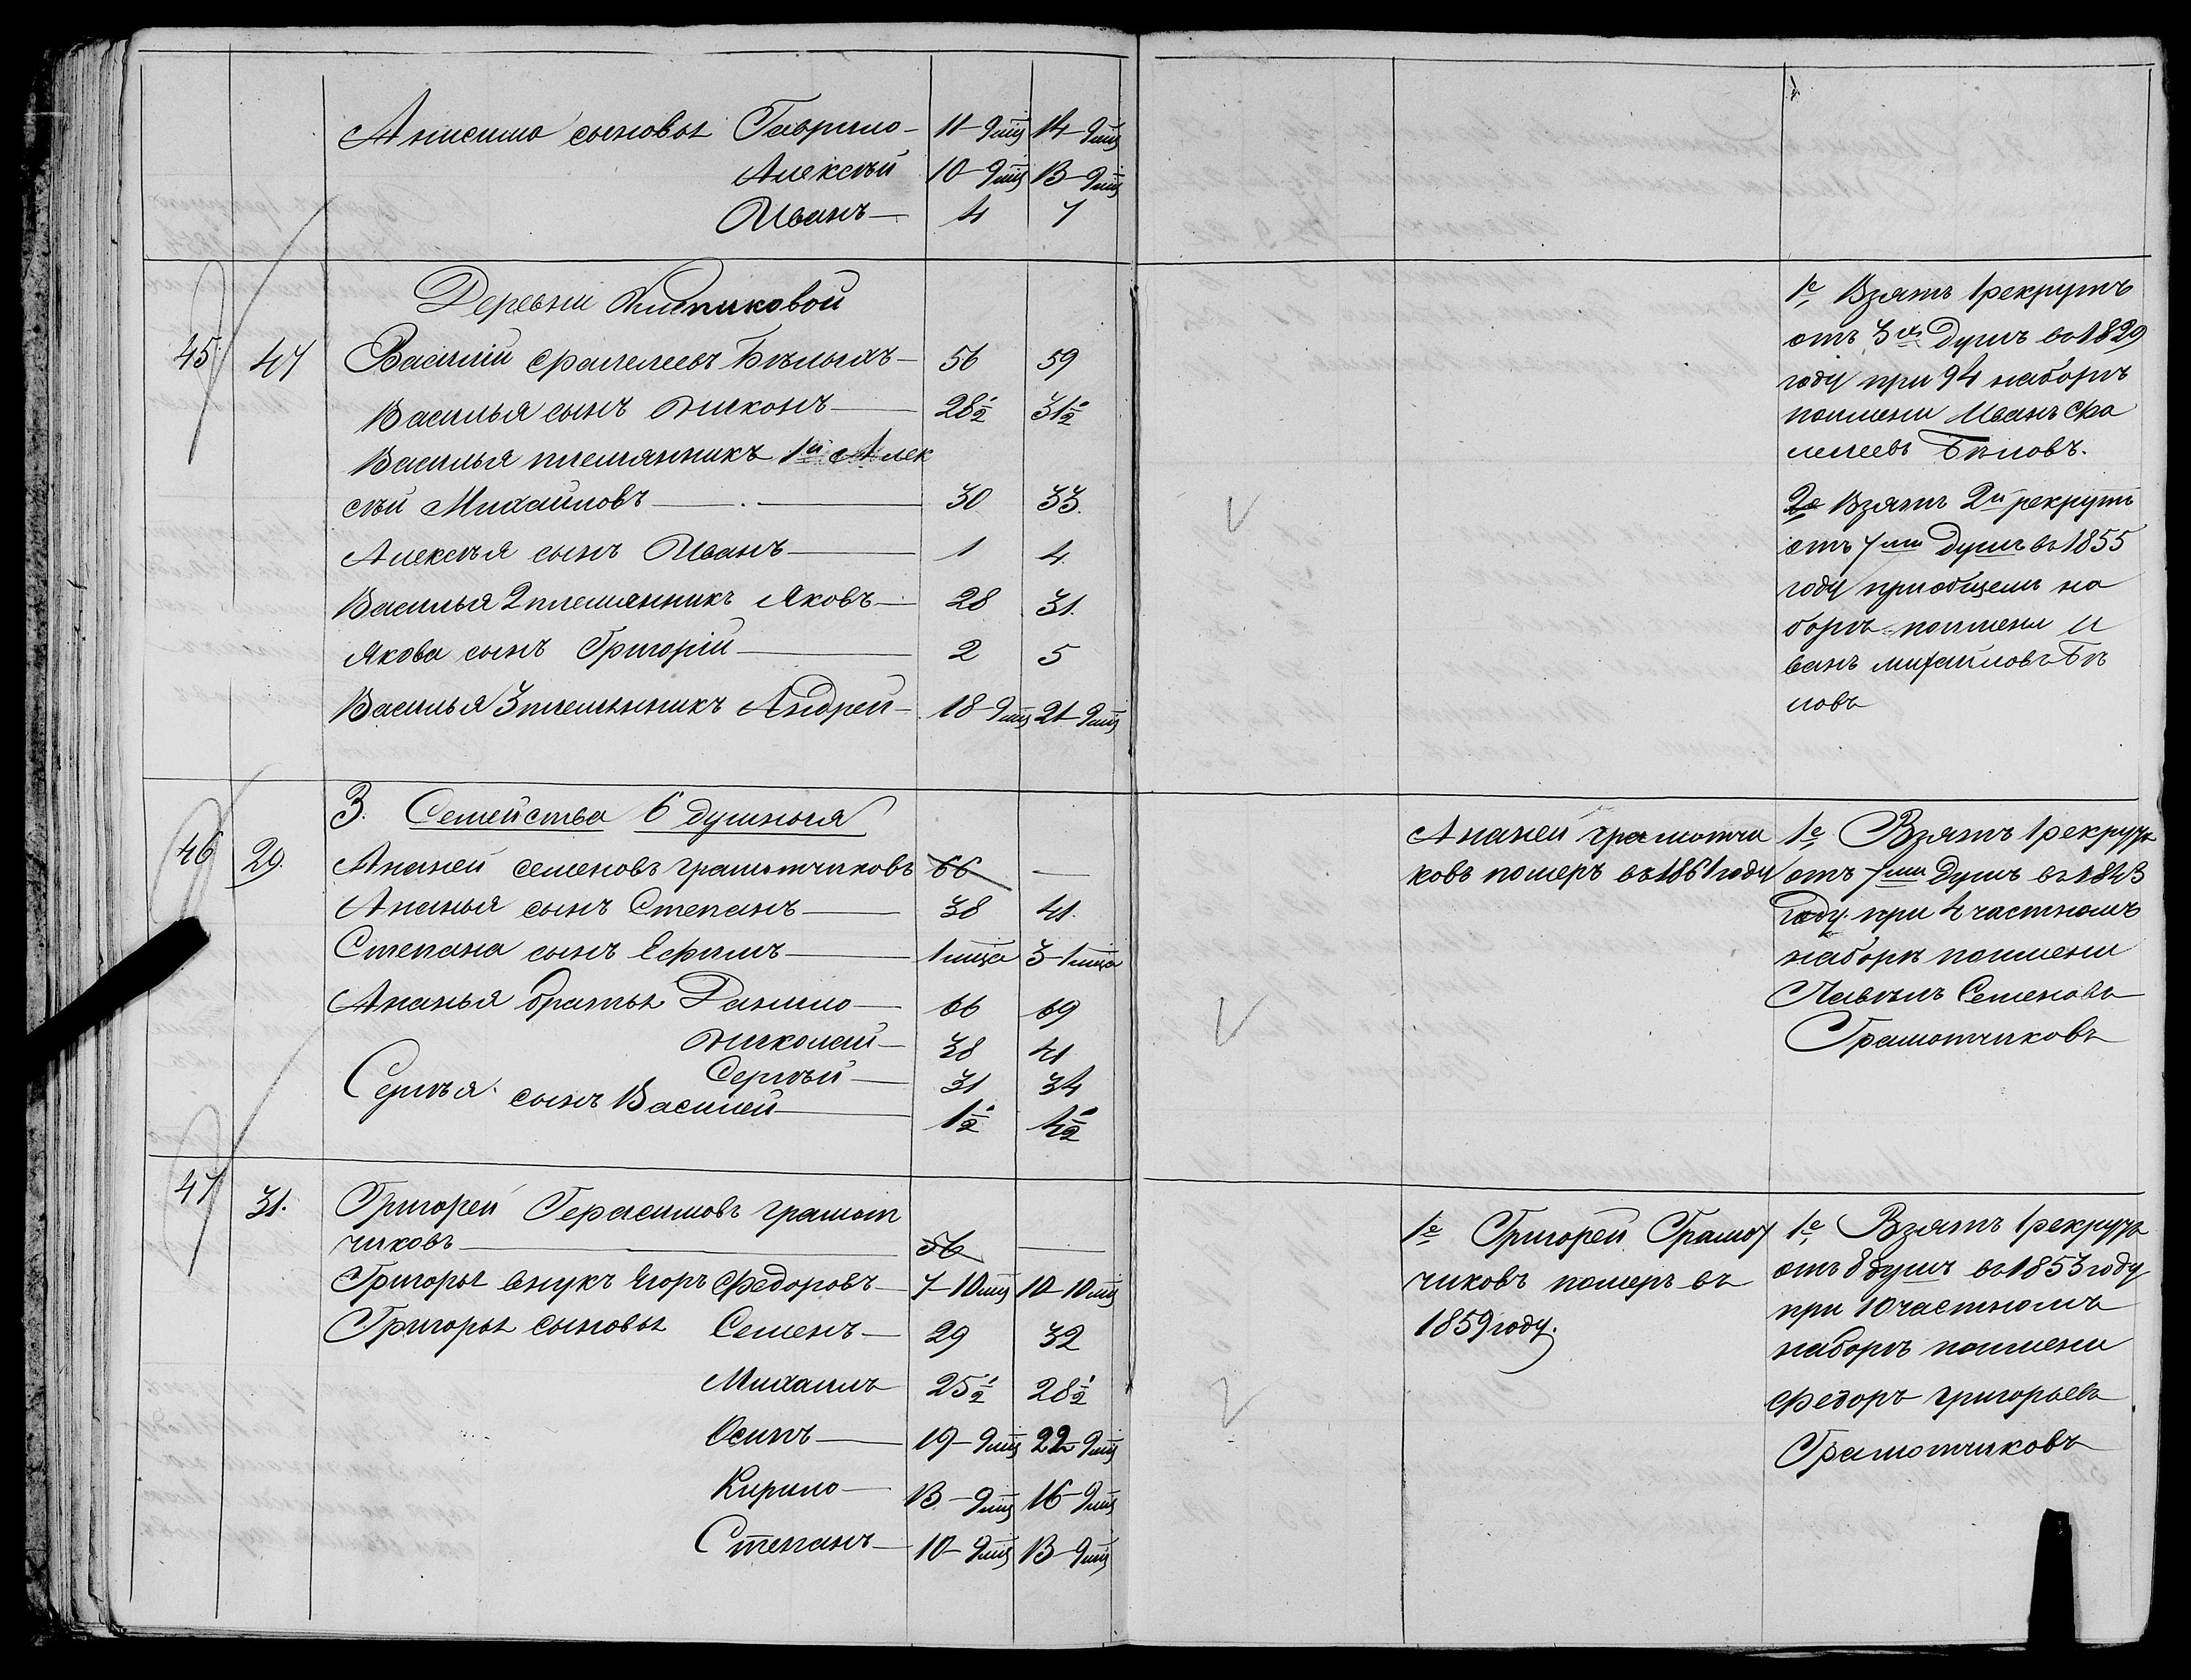 Анисима сыновья Гаврило — 11–9 мѣц 14–9 мѣц
Алексѣй 10–9 мѣц 13–9 мѣц
Иванъ — 4 7
Деревни
45 47 Василій Фалелеевъ Бѣлыхъ — 56 59
Василья сынъ Никонъ — 28 1/2 31 1/2
Василья племянникъ 1й Алек
сѣй Михайловъ — 30 33.
Алексѣя сынъ Иванъ — 1 4
Василья 2 племянникъ Яковъ — 28 31.
Якова сынъ Григорій — 2 5
Василья 3 племянникъ Андрей — 18–9 мѣц 21–9 мѣц
3. Семейства 6 душныя
46 29. Ананей Семеновъ Грамотчиковъ 66 —
Ананья сынъ Степанъ — 38 41.
Степана сынъ Ефимъ — 1 мѣца 3–1 мѣца
Ананья братья Данило — 66 69
Николай — 38 41
Сергѣй — 31 34
Сергѣя сынъ Василей — 1 1/2 4 1/2
47 31. Григорей Герасимовъ Грамот
чиковъ — 56 —
Григорья внукъ Егоръ Федоровъ — 7–10 мѣц 10–10 мѣц
Григорья сыновья Семенъ — 29 32
Михаилъ 25 1/2 28 1/2
Осипъ — 19–9 мѣц 22–9 мѣц
Кирило — 13–9 мѣц 16–9 мѣц
Степанъ — 10–9 мѣц 13–9 мѣц
1е Взятъ 1 рекрутъ
отъ 3хъ душъ въ 1829
году при 94 наборѣ
поимени Иванъ Фа
лелеевъ Бѣловъ.
2е Взятъ 2й рекрутъ
отъ 7ми душъ въ 1855
году приобщемъ на
борѣ поимени И
ванъ Михайловъ Бѣ
ловъ
Ананей Грамотчи
ковъ померъ въ 1861 году
1е Взятъ 1 рекрутъ
отъ 7ми душъ въ 1843
году при 4 частномъ
наборѣ поимени
Павелъ Семеновъ
Грамотчиковъ
1е Григорей Грамот
чиковъ померъ въ
1859 году.
1е Взятъ 1 рекрутъ
отъ 8 душъ въ 1853 году
при 10 частномъ
наборѣ поимени
Федоръ Григорьевъ
Грамотчиковъ